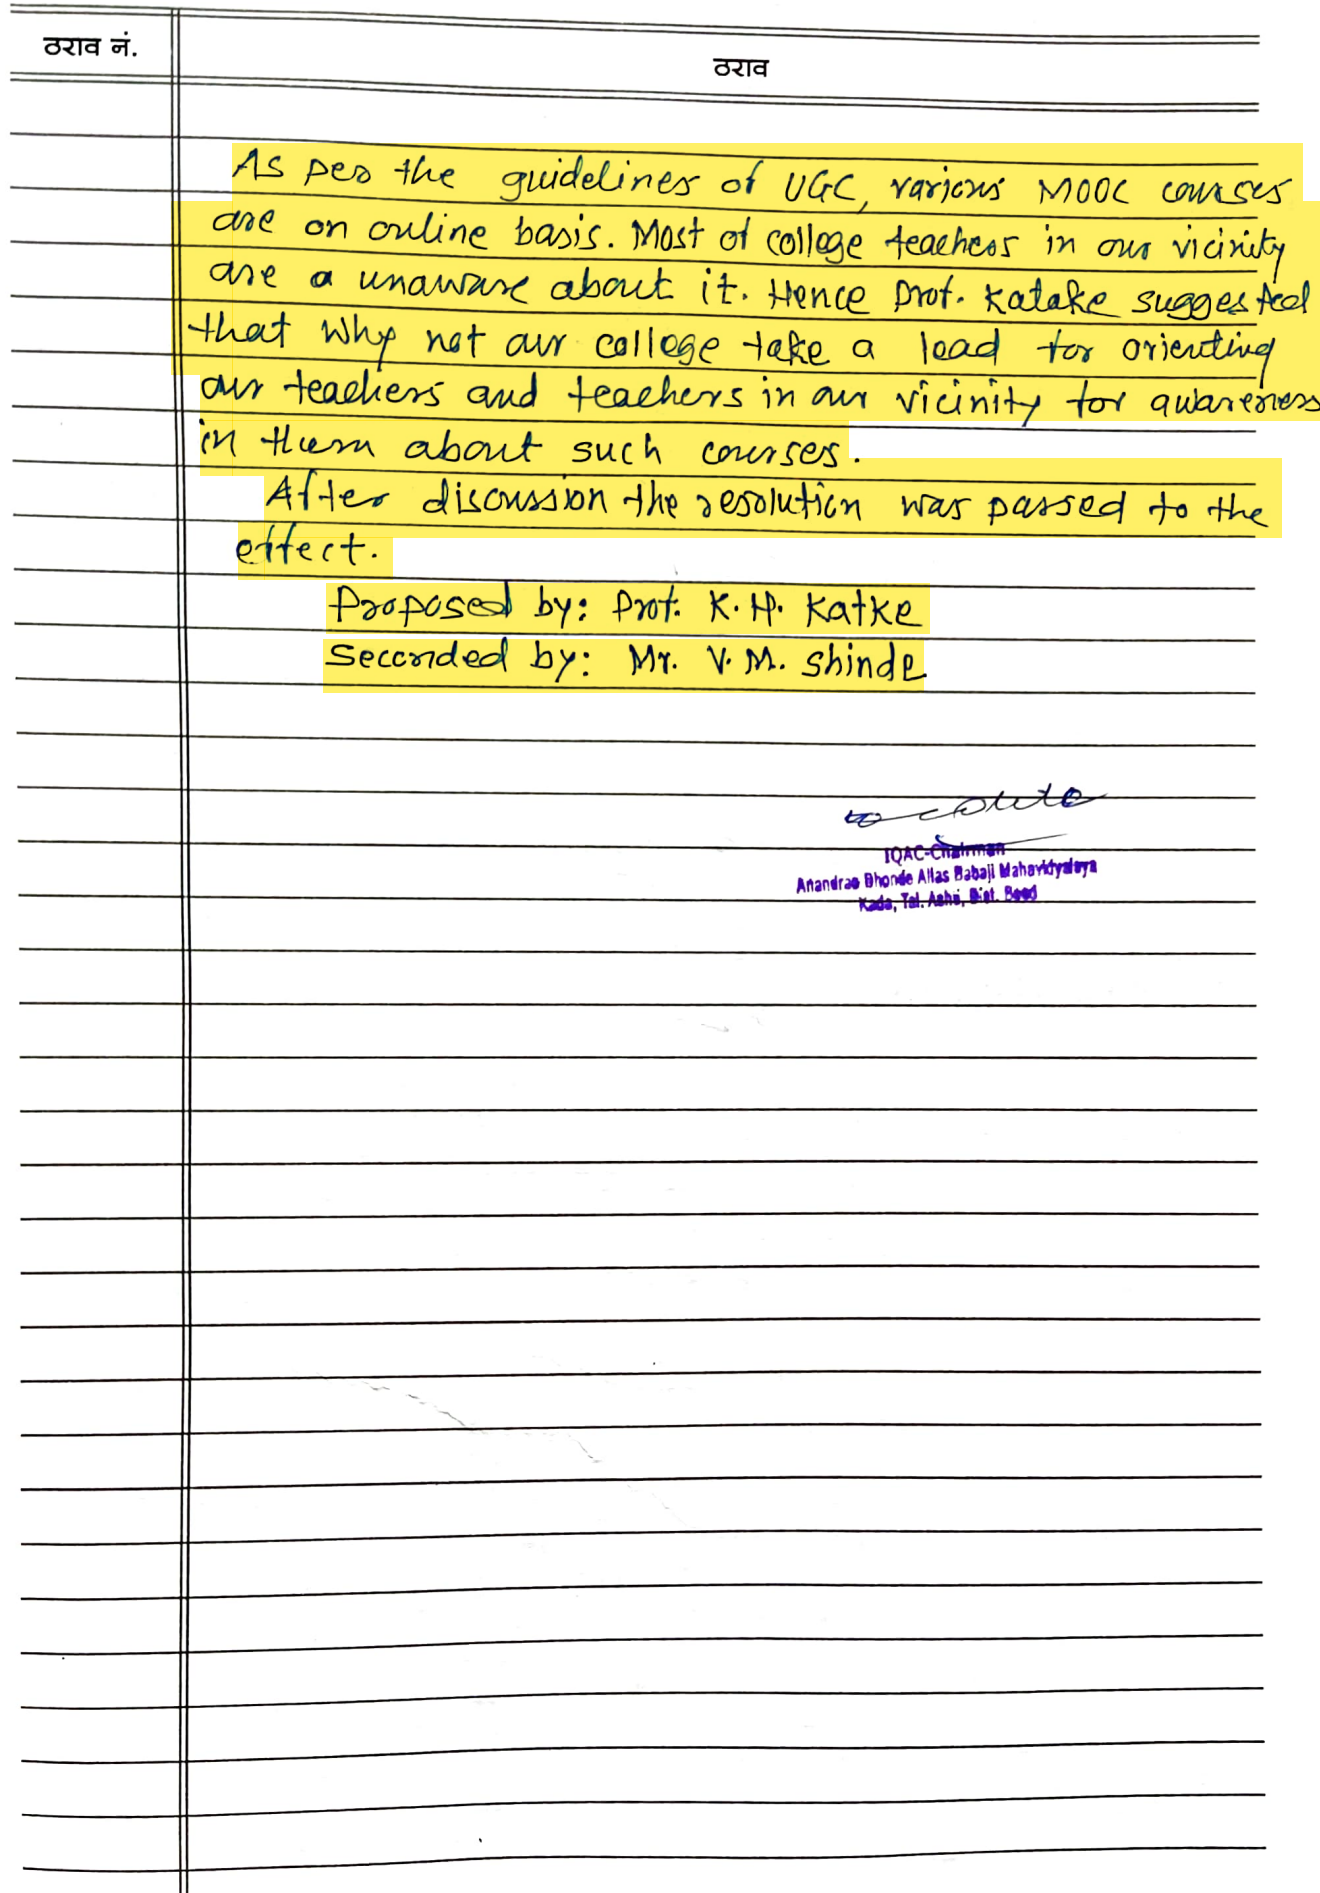 ठराव नं.
ठराव
As per the guidelines of UGC, various MOOC courses
are on online basis. Most of college teachers in our vicinity
are a unaware about it. Hence Prof. Katake suggested
that why not our college take a lead for orienting
our teachers and teachers in our vicinity for awareness
in them about such courses.
After discussion the resolution was passed to the
effect.
Proposed by: Prof. K. H. Katke
Seconded by: Mr. V. M. Shinde
IQAC-Chairman
Anandrao Dhonde Alias Babaji Mahavidyalaya
Kada, Tal. Ashti, Dist. Beed